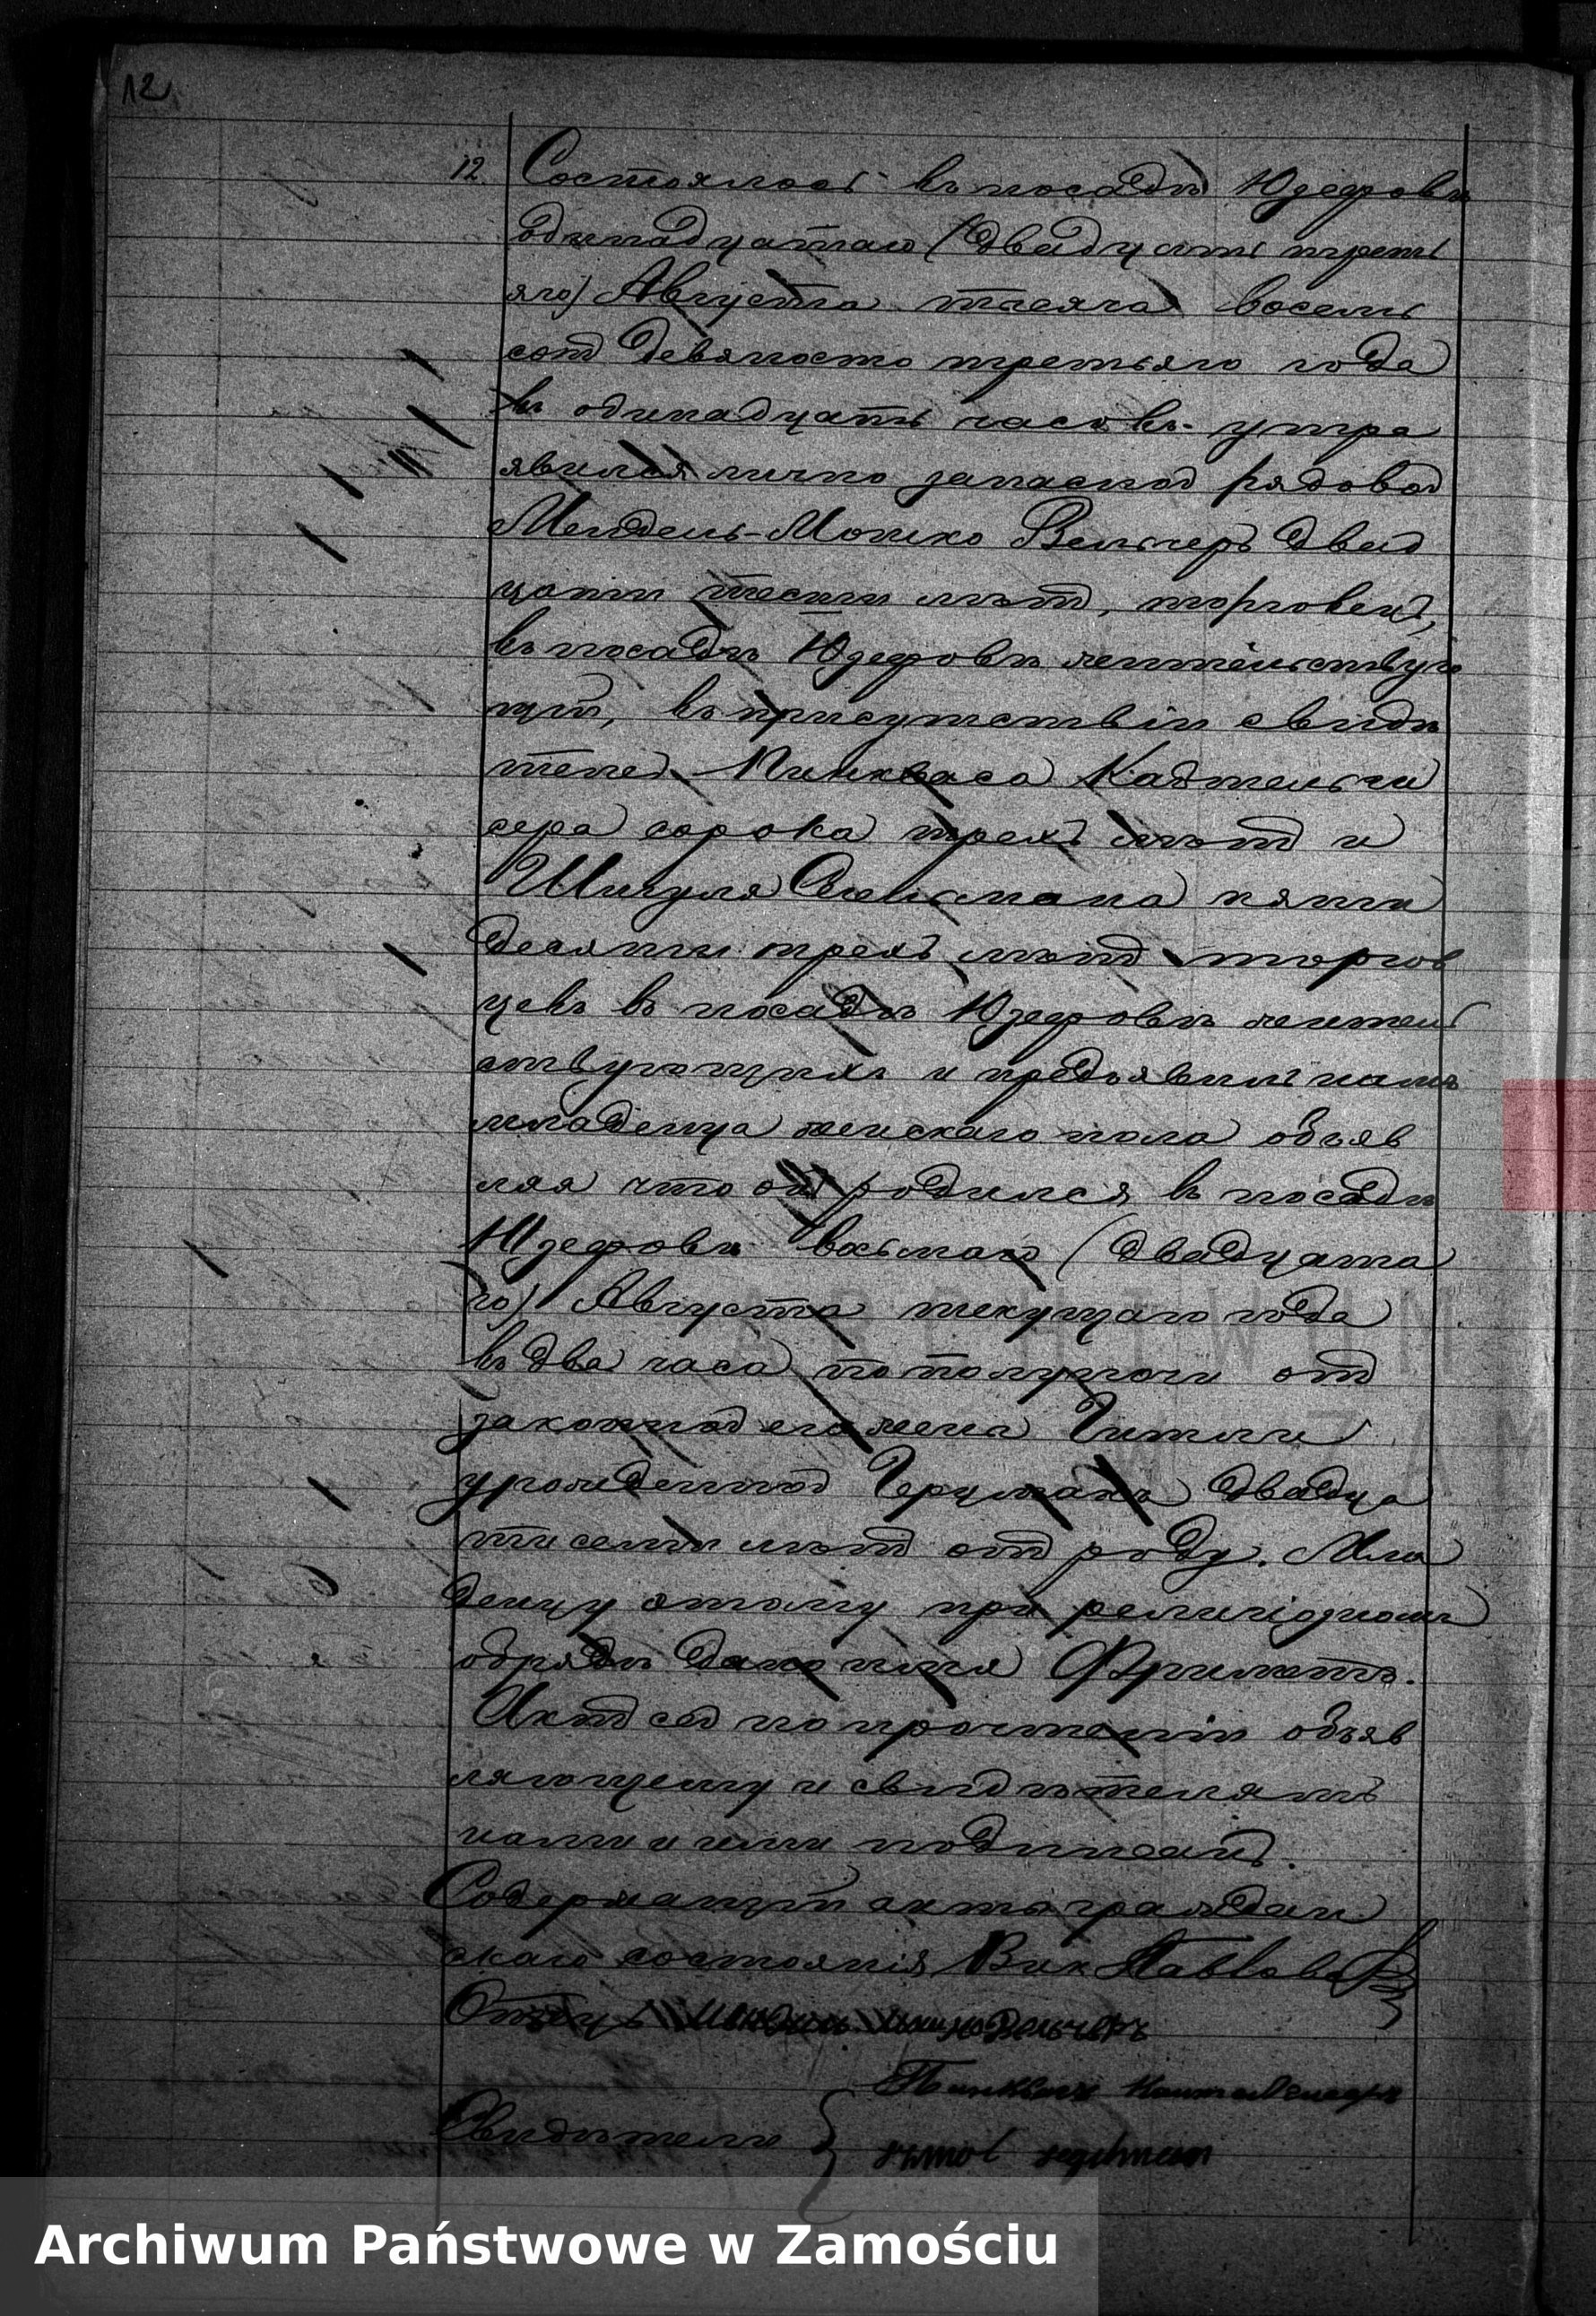 12
12. Состоялось въ посадѣ Юзефовѣ
одинадцатаго (двадцать треть
яго) Августа тысяча восемь
сотъ девяносто третьяго года
въ одинадцать часовъ утра
явился лично запасной рядовой
Мендель-Мошко Вельчеръ двад
цати шести лѣтъ, торговецъ,
въ посадѣ Юзефовѣ жительствую
щій, въ присутствіи свидѣ
телей Пинкваса
сера сорока трехъ лѣтъ и
Шмуля пяти
десяти трехъ лѣтъ торгов
цевъ въ посадѣ Юзефовѣ житель
ствующихъ и предъявилъ намъ
младенца женскаго пола объяв
ляя что онъ родился въ посадѣ
Юзефовѣ восьмаго (двадцата
го) Августа текущаго года
въ два часа по полуночи отъ
законной его жены Гитли
урожденной двадца
ти семи лѣтъ отъ роду. Мла
денцу этому при религіозномъ
обрядѣ дано имя Фриметъ.
Актъ сей по прочтеніи объяв
ляющему и свидѣтелямъ
нами и ими подписанъ.
Содержащій акты граждан
скаго состоянія Вик Павловъ
Отецъ Мендель Мошко Вельчеръ
Пинквасъ
Свидѣтели {
szmol
Archiwum Państwowe w Zamościu